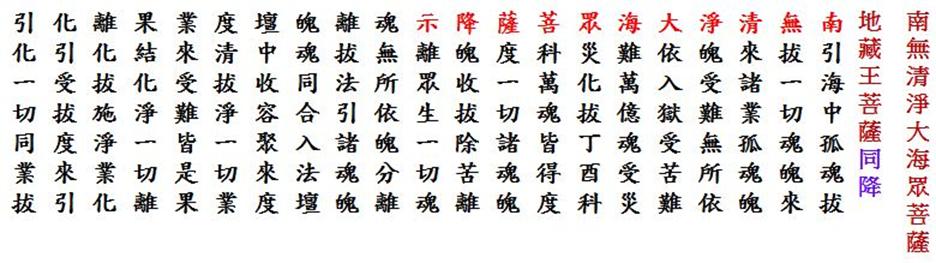 南無清淨大海眾菩薩
地藏王菩薩同降
南引海中孤魂拔
無拔一切魂魄來
清來諸業孤魂魄
淨魄受難無所依
大依入獄受苦難
海難萬億魂受災
眾災化拔丁酉科
菩科萬魂皆得度
薩度一切諸魂魄
降魄收拔除苦離
示離眾生一切魂
魂無所依魄分離
離拔法引諸魂魄
魄魂同合入法壇
壇中收容聚來度
度清拔淨一切業
業來受難皆是果
果結化淨一切離
離化拔施淨業化
化引受拔度來引
引化一切同業拔